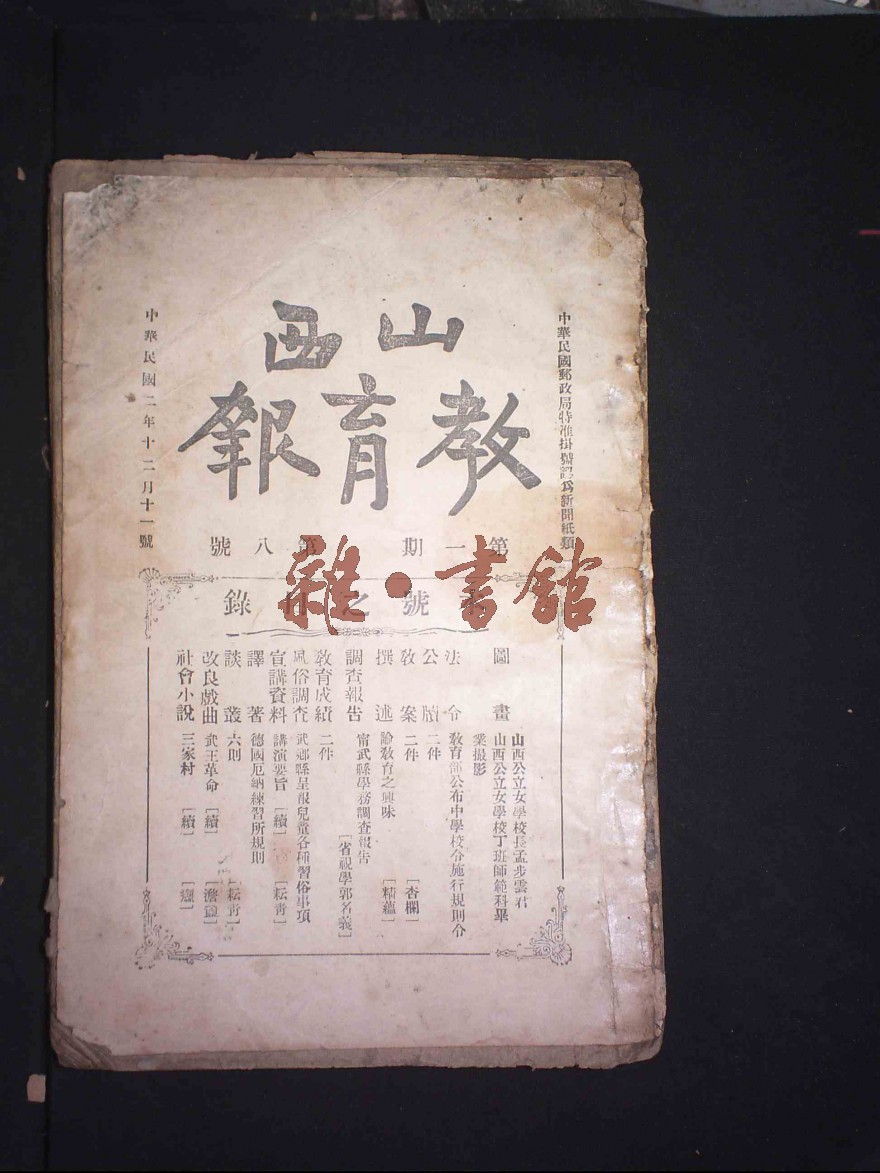 中華民國郵政局特准掛號認為新聞紙類
山西
教育報
第一期 第八號
號之目錄
中華民國二年十二月十一號
圖畫 山西公立女學校長孟步雲君
山西公立女學校丁班師範科畢業撮影
法令 教育部公布中學校令施行規則令
公牘 二件
教案 二件 [杏欄]
撰述 論教育之興味 [精蘊]
調查報告 甯武縣學務調查報告 [省視學郭名義]
教育成績 二件
風俗調查 武鄉縣呈報兒童各種習俗事項
宣講資料 講演要旨 [續] [耘靑]
譯著 德國厄納練習所規則
談叢 六則 [耘靑]
改良戲曲 武王革命 [續] [澹盦]
社會小說 三家村 [續]
雜·書館